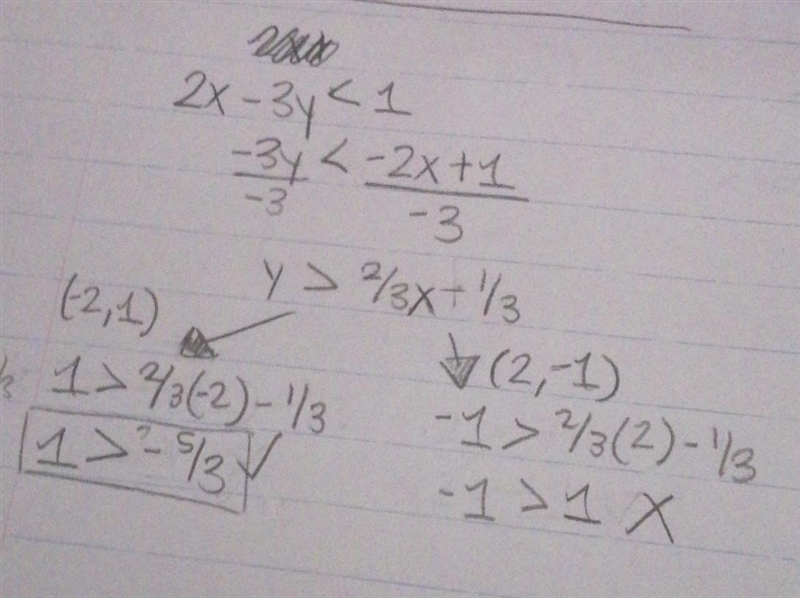 2x - 3y < 1
-3y < -2x + 1
-3 -3
y > 2/3x - 1/3
(-2,1)
1 > 2/3(-2) - 1/3
1 > - 5/3 ✓
(2,-1)
-1 > 2/3(2) - 1/3
-1 > 1 X